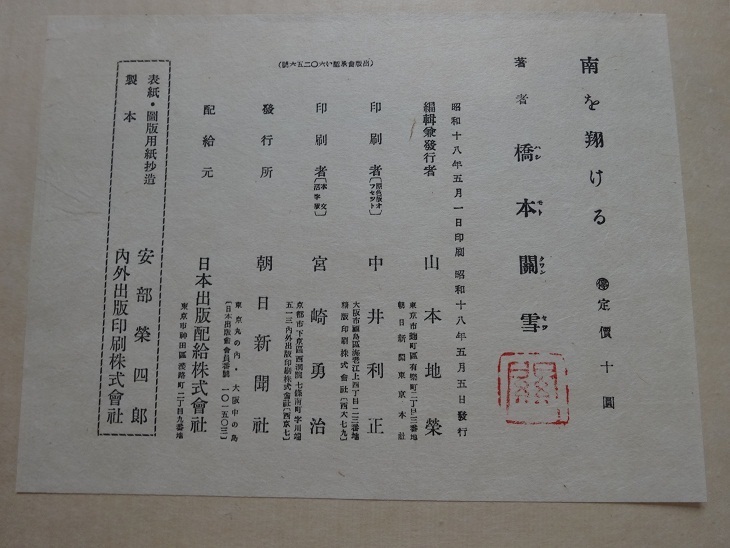 南を翔ける
定價十圓
著者 橋本關雪
ハシ モト クワン セツ
昭和十八年五月一日印刷 昭和十八年五月五日發行
編輯兼發行者 山本地榮
東京市麹町區有樂町二丁目三番地
朝日新聞東京本社
印刷者〔原色版オフセット〕 中井利正
大阪市福島區海老江上四丁目二三番地
精版印刷株式會社〔西大七九〕
印刷者〔本文活字版〕 宮崎勇治
京都市下京區西洞院七條南町字用端
五一三內外出版印刷株式會社〔西京七〕
發行所 朝日新聞社
東京丸の內・大阪中の島
〔日本出版會會員番號 一〇一五〇三〕
配給元 日本出版配給株式會社
東京市神田區淡路町二丁目九番地
表紙・圖版用紙抄造 安部榮四郎
製本 內外出版印刷株式會社
(出版會承認い六〇二五六號)